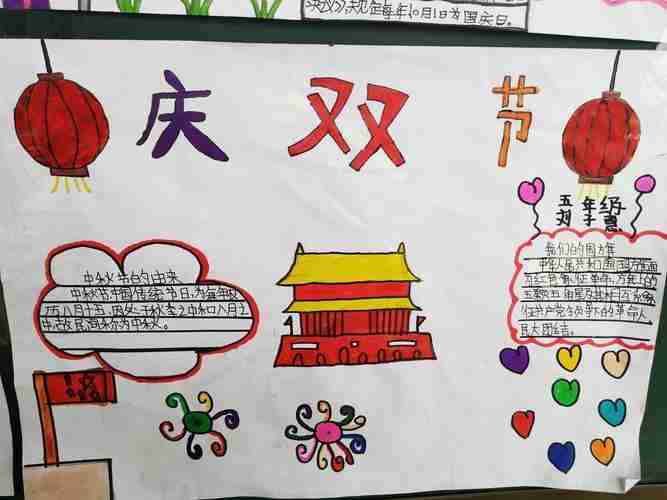 规定每年10月1日为国庆日。
庆双节
五年级
刘子
中秋节的由来
中秋节为中国传统节日,为每年农
历八月十五,因处于秋季之中和八月之
中,故民间称为中秋。
我们的国
中华人民共和国国旗
红
五颗五角星及其相互
征共产党领导下的革命人
民大团结。